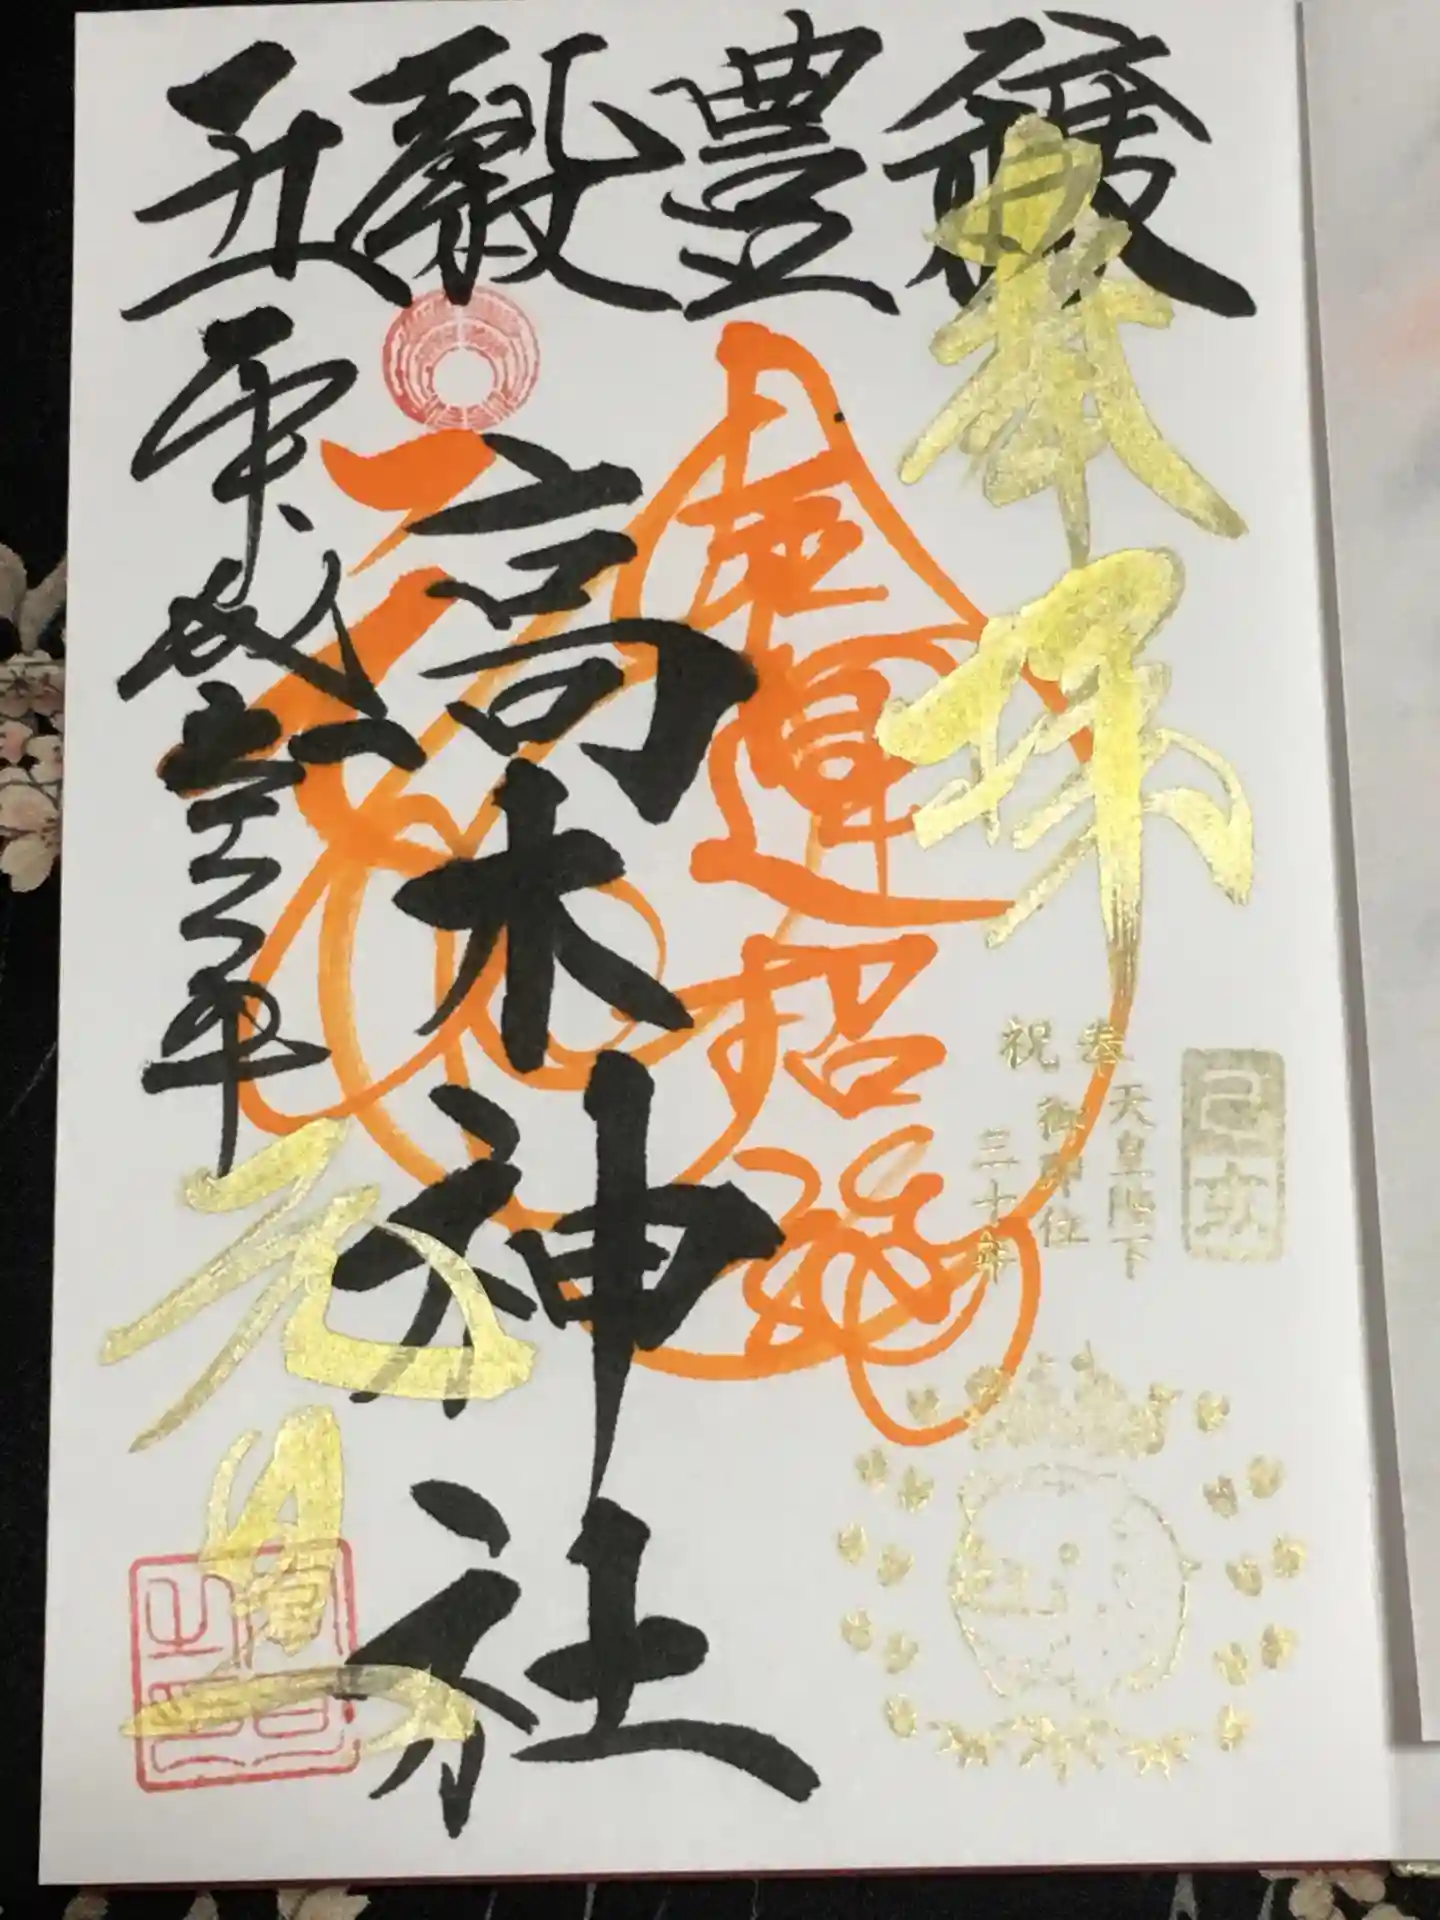 五穀豊穣
奉拝
己亥
奉祝
天皇陛下
御即位
三十年
金運招福
高木神社
平成三十一年
元旦